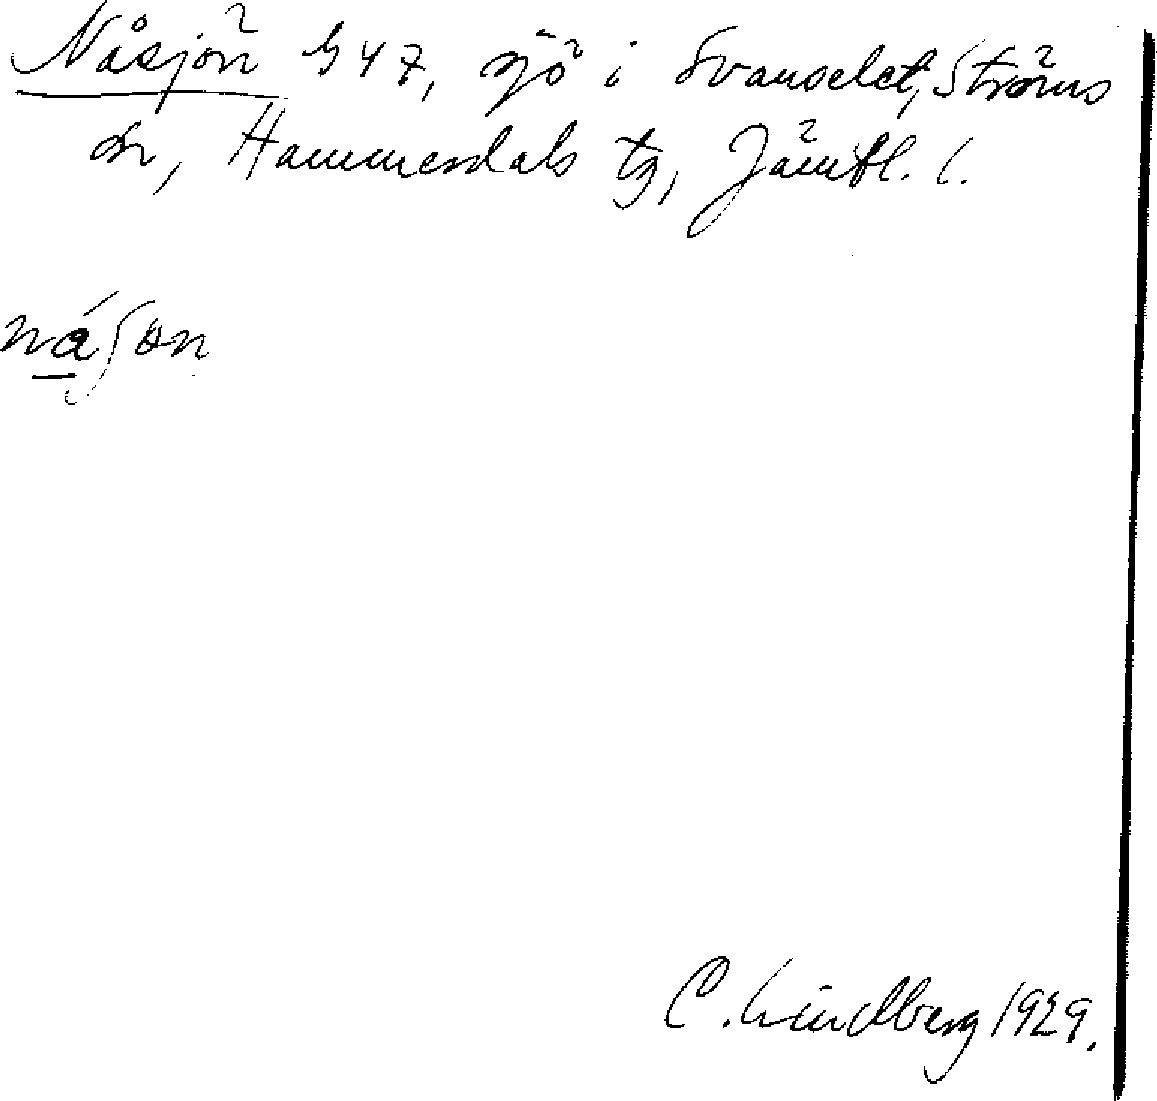 Nåsjön 547, sjö i Svanselet, Ströms
sn, Hammerdals tg, Jämtl. l.
ná̱ʃon
C. Lindberg 1929.